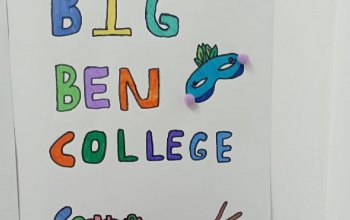 BIG
BEN
COLLEGE